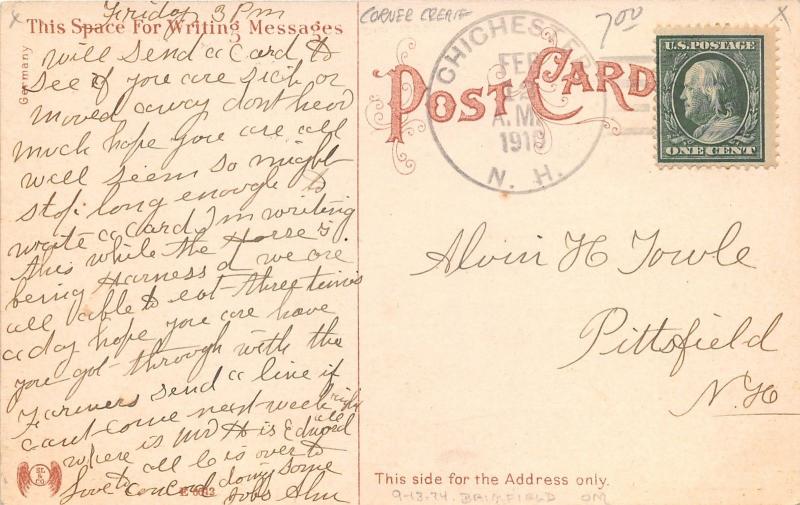 Friday, 3 Pm
This Space For Writing Messages
Germany
will send a Card to
see if you are sick or
moved away dont hear
much hope you are all
well seem so might
stop long enough to
write a Card I'm writing
this while the Horse is
being Harnessd we are
all able to eat three times
a day hope you are have
you got through with the
Farmers send a line if
cant come next week
where is Mr H is Edward
all
to Concord doing some
Love to all
jobs
CORNER CREASE
7.00
POST CARD
CHICHESTER
FEB
A.M.
191
N. H.
U.S. POSTAGE
ONE CENT
Alvin H Towle
Pittsfield
N. H
This side for the Address only.
9-13-74. BRIMFIELD OM